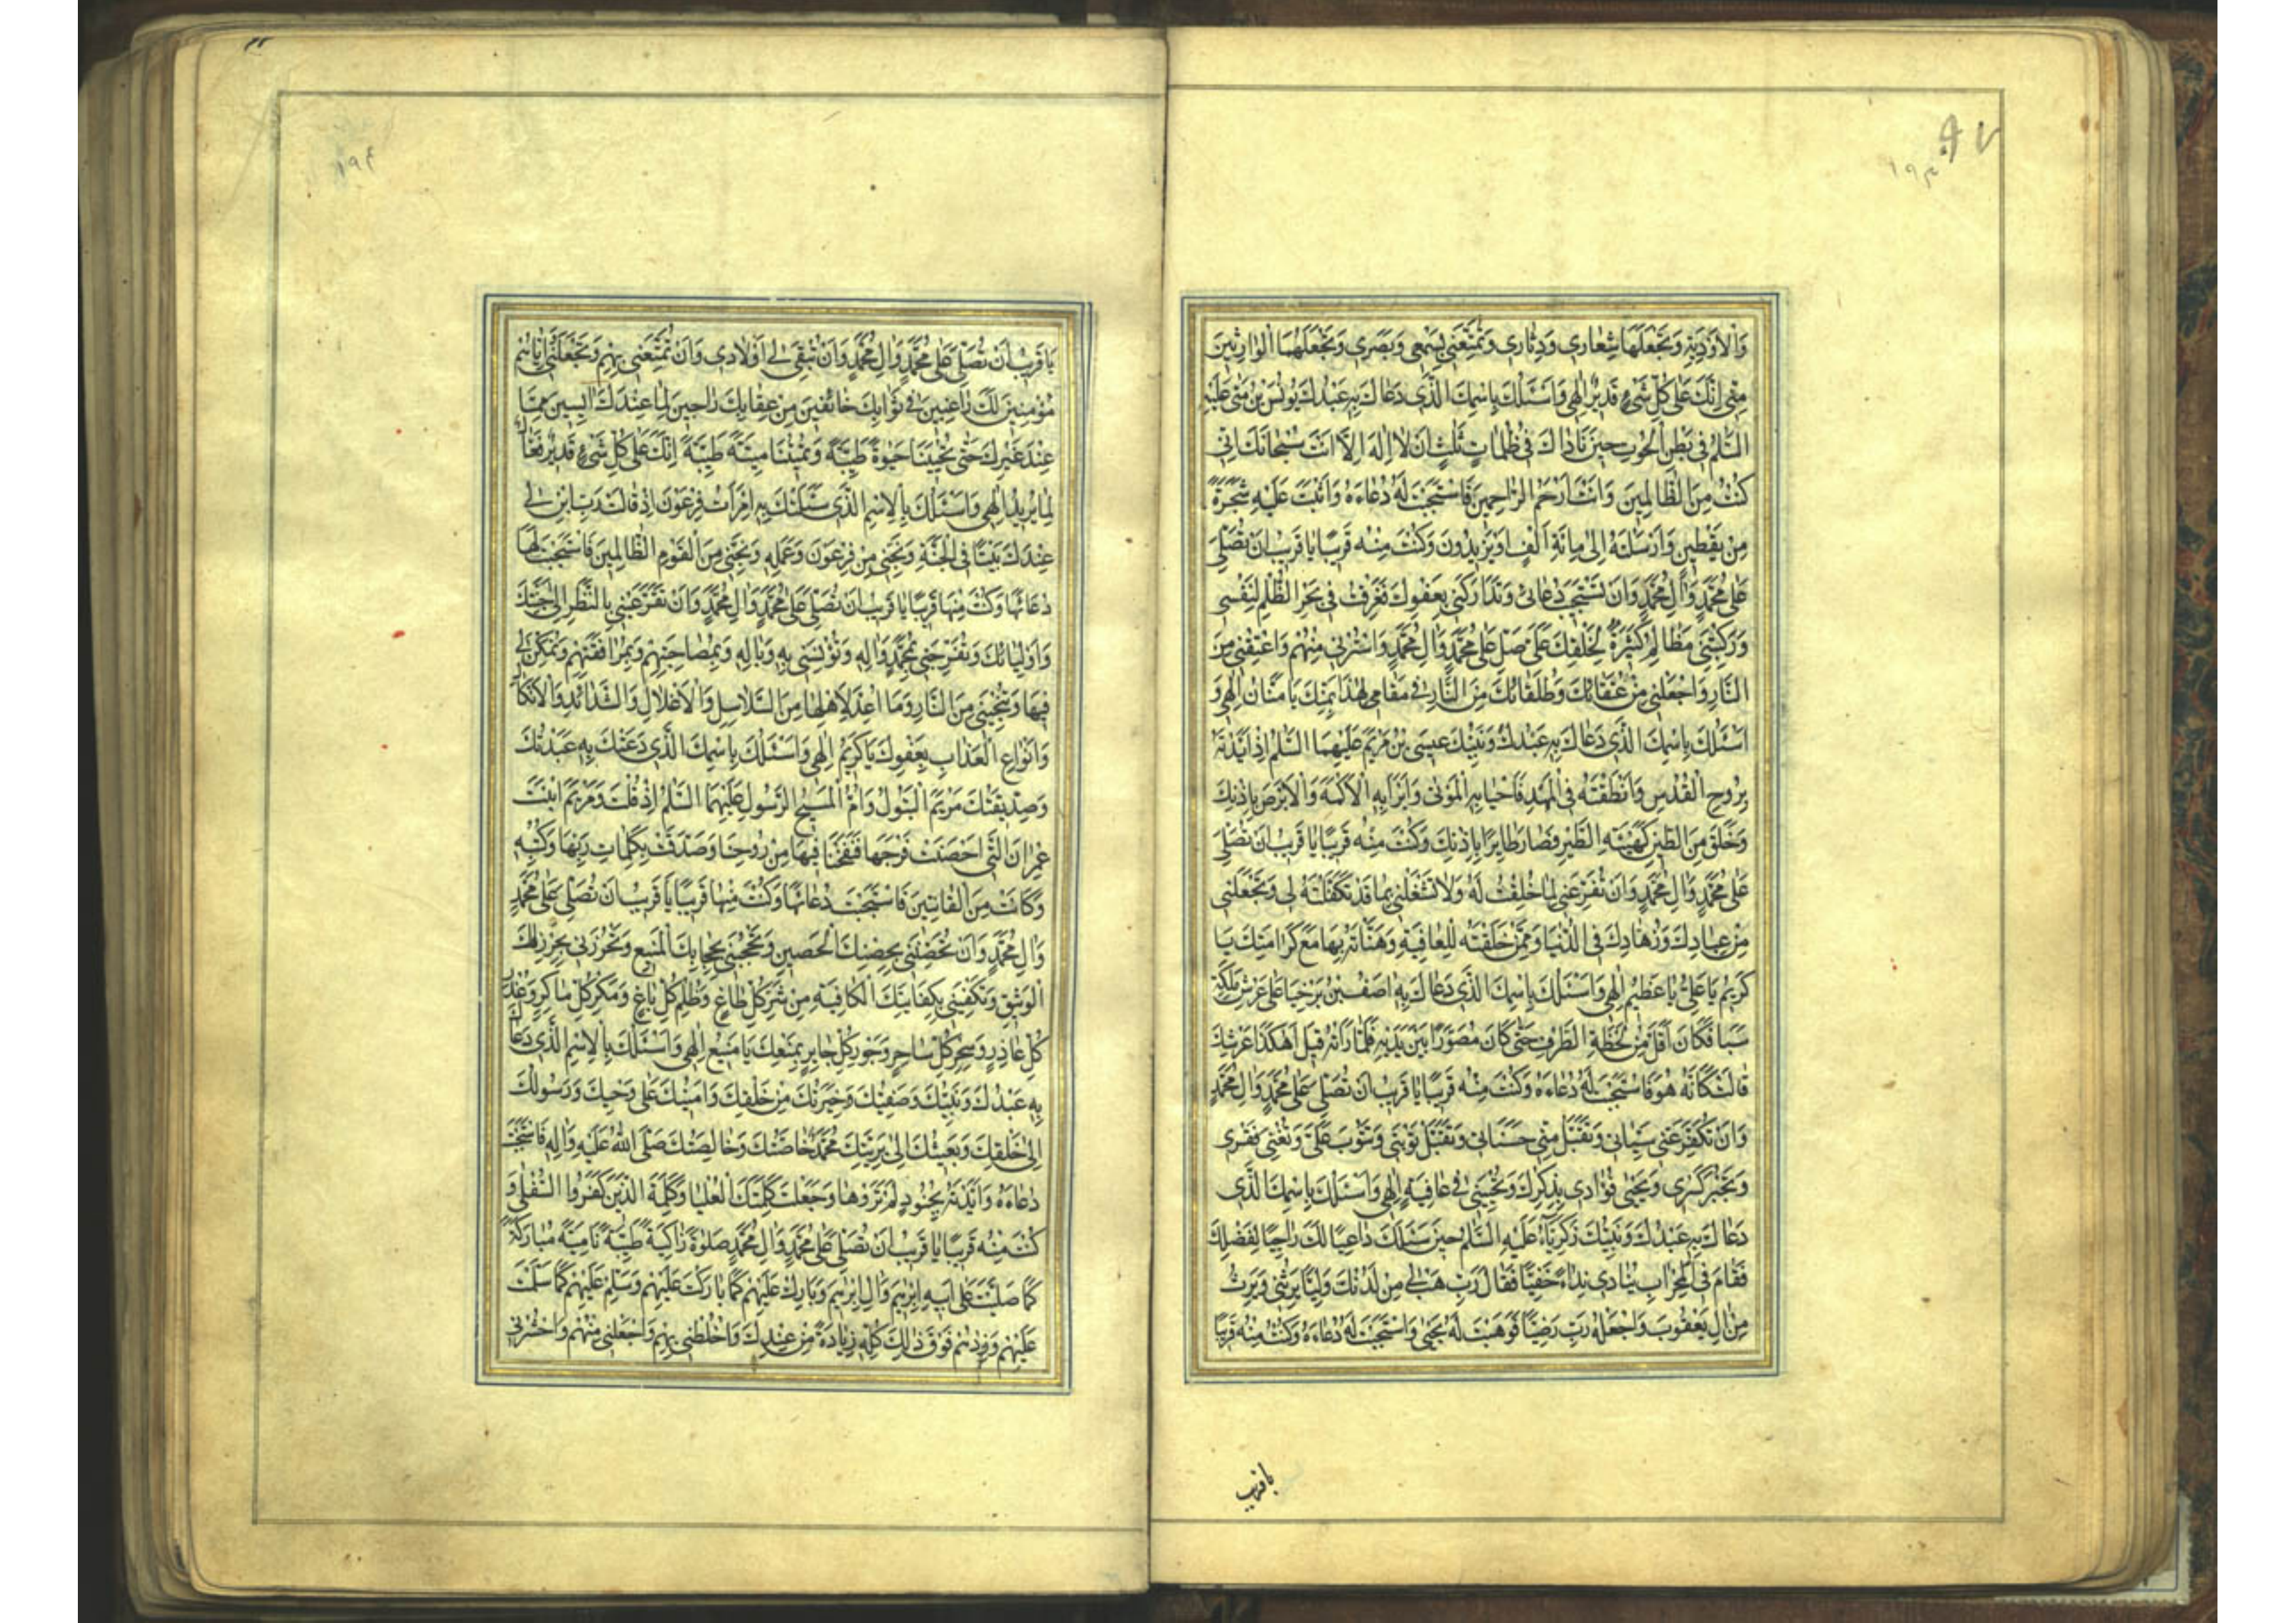 ٩٧
١٩٣
وَالْاَرْدِيَةِ وَتَجْعَلَهَا شِعَارى وَدِثَارى وَتُمَتِّعَنى بِسَمْعى وَبَصَرى وَتَجْعَلَهُمَا الْوارِثَيْنَ
مِنّى اِنَّكَ عَلى كُلِّ شَىْءٍ قَديرٌ اِلهى وَاَسْئَلُكَ بِاسْمِكَ الَّذى دَعَاكَ بِهِ عَبْدُكَ يُونُسُ بْنُ مَتّى عَلَيْهِ
السَّلمُ فى بَطْنِ الْحُوتِ حينَ نَاداكَ فى ظُلُمَاتٍ ثَلثٍ اَنْ لا اِلهَ اِلَّا اَنْتَ سُبْحَانَكَ اِنّى
كُنْتُ مِنَ الظَّالِمينَ وَاَنْتَ اَرْحَمُ الرَّاحِمينَ فَاسْتَجَبْتَ لَهُ دُعَاءَهُ وَاَنْبَتَّ عَلَيْهِ شَجَرَةً
مِنْ يَقْطينٍ وَاَرْسَلْتَهُ اِلى مِائَةِ اَلْفٍ اَوْ يَزيدُونَ وَكُنْتَ مِنْهُ قَريبًا يَا قَريبُ اَنْ تُصَلِّىَ
عَلى مُحَمَّدٍ وَالِ مُحَمَّدٍ وَاَنْ تَسْتَجيبَ دُعَائى وَتَدَارَكَنى بِعَفْوِكَ فَغَرِقْتُ فى بَحْرِ الظُّلْمِ لِنَفْسى
وَرَكِبَتْنى مَظَالِمُ كَثيرَةٌ لِخَلْقِكَ عَلَىَّ صَلِّ عَلى مُحَمَّدٍ وَالِ مُحَمَّدٍ وَاسْتُرْنى مِنْهُمْ وَاَعْتِقْنى مِنَ
النَّارِ وَاجْعَلْنى مِنْ عُتَقَائِكَ وَطُلَقَائِكَ مِنَ النَّارِ فى مَقَامى هذَا بِمَنِّكَ يَا مَنَّانُ اِلهى وَ
اَسْئَلُكَ بِاسْمِكَ الَّذى دَعَاكَ بِهِ عَبْدُكَ وَنَبِيُّكَ عيسَى بْنُ مَرْيَمَ عَلَيْهِمَا السَّلمُ اِذْ اَيَّدْتَهُ
بِرُوحِ الْقُدُسِ وَاَنْطَقْتَهُ فى الْمَهْدِ فَاَحْيَا بِهِ الْمَوْتى وَاَبْرَاَ بِهِ الْاَكْمَهَ وَالْاَبْرَصَ بِاِذْنِكَ
وَخَلَقَ مِنَ الطّينِ كَهَيْئَةِ الطَّيْرِ فَصَارَ طَايِرًا بِاِذْنِكَ وَكُنْتَ مِنْهُ قَريبًا يَا قَريبُ اَنْ تُصَلِّىَ
عَلى مُحَمَّدٍ وَالِ مُحَمَّدٍ وَاَنْ تُفَرِّغَنى لِمَا خُلِقْتُ لَهُ وَلَا تَشْغَلْنى بِمَا قَدْ تَكَفَّلْتَهُ لى وَتَجْعَلَنى
مِنْ عِبَادِكَ وَزُهَّادِكَ فى الدُّنْيَا وَمِمَّنْ خَلَقْتَهُ لِلْعَافِيَةِ وَهَنَّاتَهُ بِهَا مَعَ كَرَامَتِكَ يَا
كَريمُ يَا عَلِىُّ يَا عَظيمُ اِلهى وَاَسْئَلُكَ بِاسْمِكَ الَّذى دَعَاكَ بِهِ اصَفُ بْنُ بَرْخِيَا عَلى عَرْشِ مَلِكَةِ
سَبَا فَكَانَ اَقَلَّ مِنْ لَحْظَةِ الطَّرْفِ حَتّى كَانَ مُصَوَّرًا بَيْنَ يَدَيْهِ فَلَمَّا رَاَتْهُ قيلَ اَهكَذَا عَرْشُكِ
قَالَتْ كَاَنَّهُ هُوَ فَاسْتَجَبْتَ لَهُ دُعَاءَهُ وَكُنْتَ مِنْهُ قَريبًا يَا قَريبُ اَنْ تُصَلِّىَ عَلى مُحَمَّدٍ وَالِ مُحَمَّدٍ
وَاَنْ تُكَفِّرَ عَنّى سَيِّئَاتى وَتَقْبَلَ مِنّى حَسَنَاتى وَتَقْبَلَ تَوْبَتى وَتَتُوبَ عَلَىَّ وَتُغْنِىَ فَقْرى
وَتَجْبُرَ كَسْرى وَتُحْيِىَ فُؤَادى بِذِكْرِكَ وَتُحْيِيَنى فى عَافِيَةٍ اِلهى وَاَسْئَلُكَ بِاسْمِكَ الَّذى
دَعَاكَ بِهِ عَبْدُكَ وَنَبِيُّكَ زَكَرِيَّاءُ عَلَيْهِ السَّلمُ حينَ سَئَلَكَ دَاعِيًا لَكَ رَاجِيًا لِفَضْلِكَ
فَقَامَ فى الْمِحْرَابِ يُنَادى نِدَاءً خَفِيًّا فَقَالَ رَبِّ هَبْ لى مِنْ لَدُنْكَ وَلِيًّا يَرِثُنى وَيَرِثُ
مِنْ الِ يَعْقُوبَ وَاجْعَلْهُ رَبِّ رَضِيًّا فَوَهَبْتَ لَهُ يَحْيى وَاسْتَجَبْتَ لَهُ دُعَاءَهُ وَكُنْتَ مِنْهُ قَريبًا
يا قريب
١٩٤
يَا قَريبُ اَنْ تُصَلِّىَ عَلى مُحَمَّدٍ وَالِ مُحَمَّدٍ وَاَنْ تُبْقِىَ لى اَوْلَادى وَاَنْ تُمَتِّعَنى بِهِمْ وَتَجْعَلَنى وَاِيَّاهُمْ
مُؤْمِنينَ لَكَ رَاغِبينَ فى ثَوَابِكَ خَائِفينَ مِنْ عِقَابِكَ رَاجينَ لِمَا عِنْدَكَ ايِسينَ مِمَّا
عِنْدَ غَيْرِكَ حَتّى تُحْيِيَنَا حَيوةً طَيِّبَةً وَتُميتَنَا ميتَةً طَيِّبَةً اِنَّكَ عَلى كُلِّ شَىْءٍ قَديرٌ فَعَّالٌ
لِمَا يُريدُ اِلهى وَاَسْئَلُكَ بِالْاِسْمِ الَّذى سَئَلَتْكَ بِهِ امْرَاَتُ فِرْعَوْنَ اِذْ قَالَتْ رَبِّ ابْنِ لى
عِنْدَكَ بَيْتًا فى الْجَنَّةِ وَنَجِّنى مِنْ فِرْعَوْنَ وَعَمَلِهِ وَنَجِّنى مِنَ الْقَوْمِ الظَّالِمينَ فَاسْتَجَبْتَ لَهَا
دُعَائَهَا وَكُنْتَ مِنْهَا قَريبًا يَا قَريبُ اَنْ تُصَلِّىَ عَلى مُحَمَّدٍ وَالِ مُحَمَّدٍ وَاَنْ تُقِرَّ عَيْنى بِالنَّظَرِ اِلى جَنَّتِكَ
وَاَوْلِيَائِكَ وَتُفَرِّحَنى بِمُحَمَّدٍ وَالِهِ وَتُؤْنِسَنى بِهِ وَبِالِهِ وَبِمُصَاحَبَتِهِمْ وَمُرَافَقَتِهِمْ وَتُمَكِّنَ لى
فيهَا وَتُنْجِيَنى مِنَ النَّارِ وَمَا اُعِدَّ لِاَهْلِهَا مِنَ السَّلَاسِلِ وَالْاَغْلَالِ وَالشَّدَائِدِ وَالْاَنْكَالِ
وَاَنْوَاعِ الْعَذَابِ بِعَفْوِكَ يَا كَريمُ اِلهى وَاَسْئَلُكَ بِاسْمِكَ الَّذى دَعَتْكَ بِهِ عَبْدَتُكَ
وَصِدّيقَتُكَ مَرْيَمُ الْبَتُولُ وَاُمُّ الْمَسيحِ الرَّسُولِ عَلَيْهِمَا السَّلمُ اِذْ قُلْتَ وَمَرْيَمَ ابْنَتَ
عِمْرَانَ الَّتى اَحْصَنَتْ فَرْجَهَا فَنَفَخْنَا فيهَا مِنْ رُوحِنَا وَصَدَّقَتْ بِكَلِمَاتِ رَبِّهَا وَكُتُبِهِ
وَكَانَتْ مِنَ الْقَانِتينَ فَاسْتَجَبْتَ دُعَائَهَا وَكُنْتَ مِنْهَا قَريبًا يَا قَريبُ اَنْ تُصَلِّىَ عَلى مُحَمَّدٍ
وَالِ مُحَمَّدٍ وَاَنْ تُحْصِنَنى بِحِصْنِكَ الْحَصينِ وَتَحْجُبَنى بِحِجَابِكَ الْمَنيعِ وَتُحْرِزَنى بِحِرْزِكَ
الْوَثيقِ وَتَكْفِيَنى بِكِفَايَتِكَ الْكَافِيَةِ مِنْ شَرِّ كُلِّ طَاغٍ وَظُلْمِ كُلِّ بَاغٍ وَمَكْرِ كُلِّ مَاكِرٍ وَغَدْرِ
كُلِّ غَادِرٍ وَسِحْرِ كُلِّ سَاحِرٍ وَجَوْرِ كُلِّ جَايِرٍ بِمَنْعِكَ يَا مَنيعُ اِلهى وَاَسْئَلُكَ بِالْاِسْمِ الَّذى دَعَاكَ
بِهِ عَبْدُكَ وَنَبِيُّكَ وَصَفِيُّكَ وَخِيَرَتُكَ مِنْ خَلْقِكَ وَاَمينُكَ عَلى وَحْيِكَ وَرَسُولُكَ
اِلى خَلْقِكَ وَبَعيثُكَ اِلى بَرِيَّتِكَ مُحَمَّدٌ خَاصَّتُكَ وَخَالِصَتُكَ صَلَّى اللهُ عَلَيْهِ وَالِهِ فَاسْتَجَبْتَ
دُعَاءَهُ وَاَيَّدْتَهُ بِجُنُودٍ لَمْ تَرَوْهَا وَجَعَلْتَ كَلِمَتَكَ الْعُلْيَا وَكَلِمَةَ الَّذينَ كَفَرُوا السُّفْلى وَ
كُنْتَ مِنْهُ قَريبًا يَا قَريبُ اَنْ تُصَلِّىَ عَلى مُحَمَّدٍ وَالِ مُحَمَّدٍ صَلوةً زَاكِيَةً طَيِّبَةً نَامِيَةً مُبَارَكَةً
كَمَا صَلَّيْتَ عَلى اَبيهِ اِبْرهيمَ وَالِ اِبْرهيمَ وَبَارِكْ عَلَيْهِمْ كَمَا بَارَكْتَ عَلَيْهِمْ وَسَلِّمْ عَلَيْهِمْ كَمَا سَلَّمْتَ
عَلَيْهِمْ وَزِدْهُمْ فَوْقَ ذلِكَ كُلِّهِ زِيَادَةً مِنْ عِنْدِكَ وَاخْلُطْنى بِهِمْ وَاجْعَلْنى مِنْهُمْ وَاحْشُرْنى